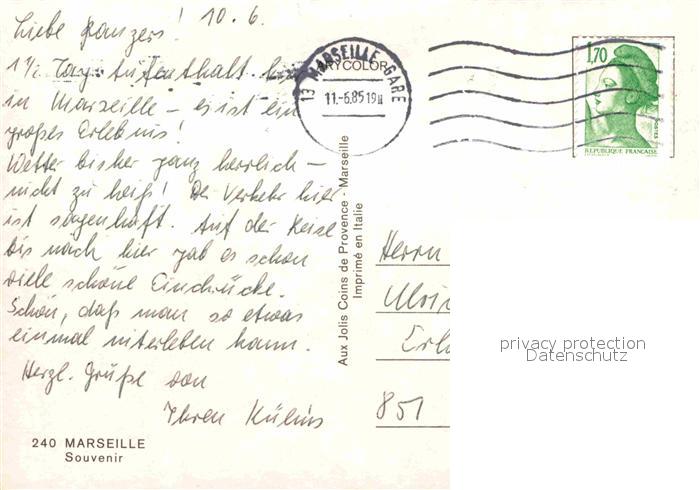 Liebe Panzers! 10.6.
1½ Tag Aufenthalt hier
in Marseille – es ist ein
großes Erlebnis!
Wetter bisher ganz herrlich –
nicht zu heiß! Der Verkehr hier
ist sagenhaft. Auf der Reise
bis nach hier gab es schon
viele schöne Eindrücke.
Schön, daß man so etwas
einmal miterleben kann.
Herzl. Grüße von
Ihren
240 MARSEILLE
Souvenir
Aux Jolis Coins de Provence - Marseille
Imprimé en Italie
13 MARSEILLE GARE
11.-6.85 19H
1,70
POSTES
REPUBLIQUE FRANÇAISE
Herrn
851
privacy protection
Datenschutz